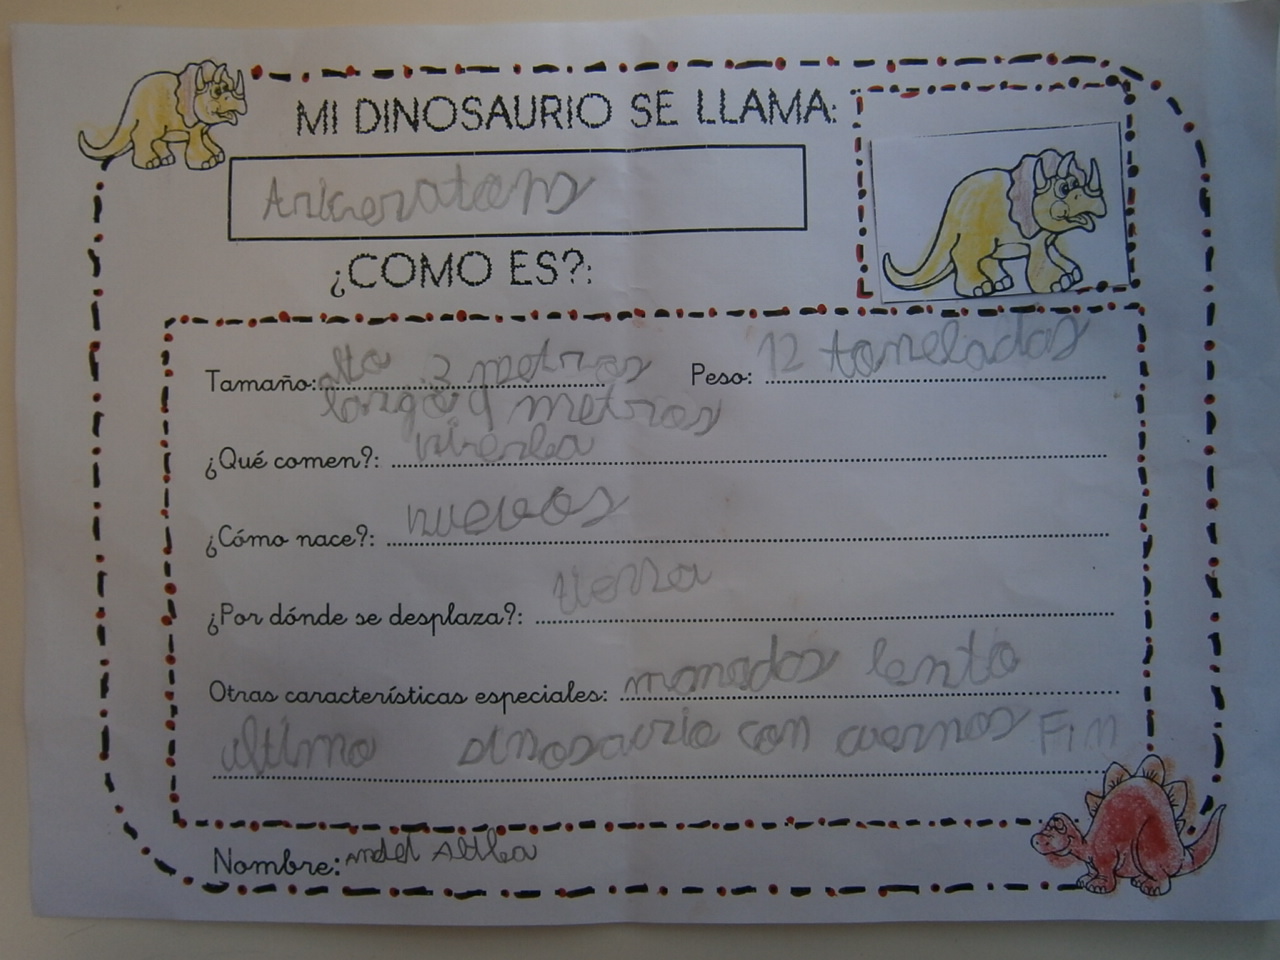 MI DINOSAURIO SE LLAMA:
¿COMO ES?:
Tamaño: alto 3 metros Peso: 12 toneladas
largo 9 metros
¿Qué comen?: hierba
¿Cómo nace?: huevos
¿Por dónde se desplaza?: tierra
Otras características especiales: manadas lento
ultimo dinosaurio con cuernos Fin
Nombre: